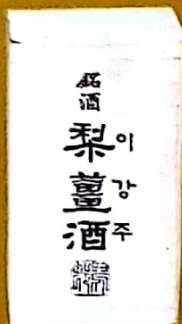 銘酒
梨薑酒
이강주